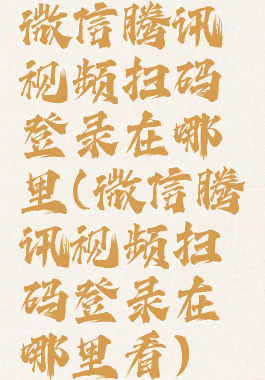 微信腾讯
视频扫码
登录在哪
里(微信腾
讯视频扫
码登录在
哪里看)